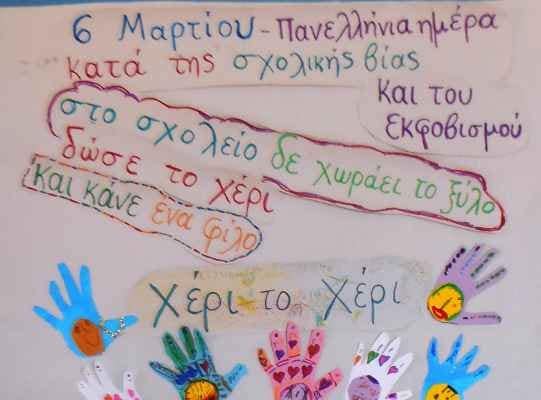 6 Μαρτίου - Πανελλήνια ημέρα
κατά της σχολικής βίας
και του
εκφοβισμού
στο σχολείο δε χωράει το ξύλο
δώσε το χέρι
και κάνε ένα φίλο
χέρι το χέρι